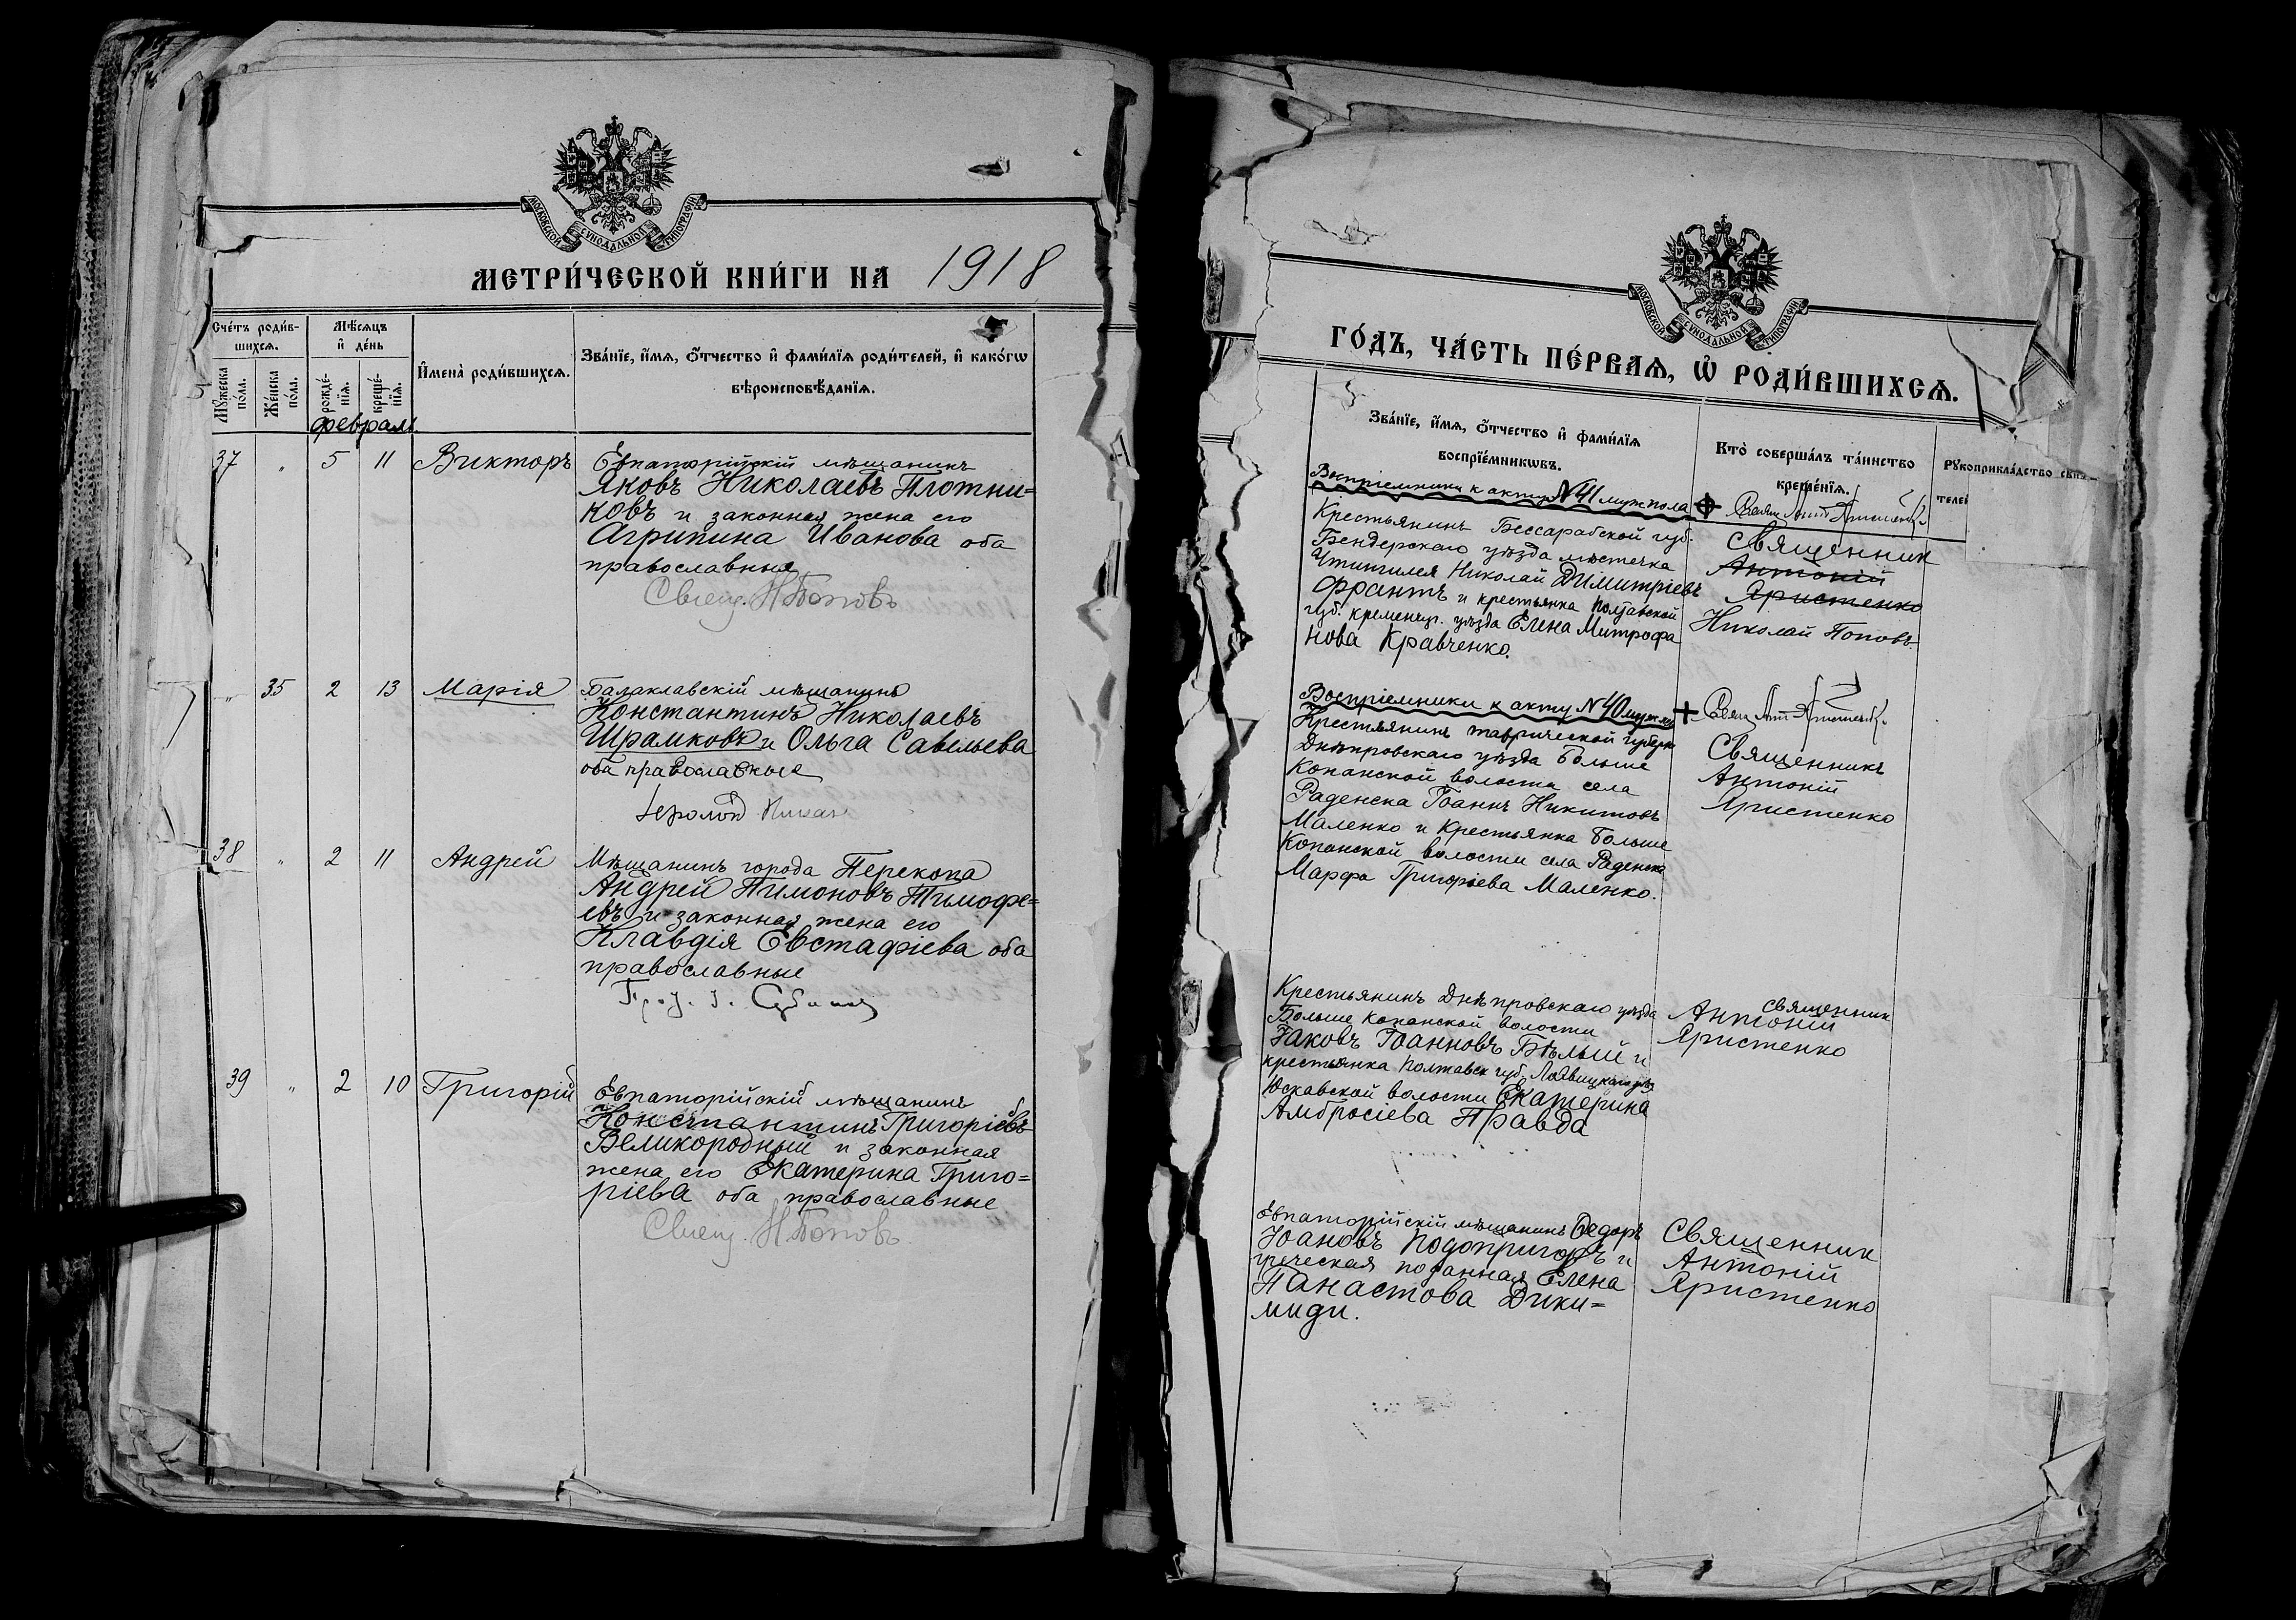 МОСКОВСКОЙ СѴНОДАЛЬНОЙ ТИПОГРАФІИ
МЕТРИ́ЧЕСКОЙ КНИ́ГИ НА 1918
Сче́тъ роди́в-
шихсѧ.
Мѣ́сѧцъ
и҆ де́нь
И҆мена̀ роди́вшихсѧ.
Зва́нїе, и҆́мѧ, ѻ҆́тчество и҆ фами́лїѧ роди́телей, и҆ како́гѡ
вѣроисповѣ́данїѧ.
Мꙋ́жеска
по́ла.
Же́нска
по́ла.
рожде́-
нїѧ.
креще́-
нїѧ.
февраль.
37 " 5 11 Викторъ
Евпаторійскій мѣщанинъ
Яковъ Николаевъ Плотни=
ковъ и законная жена его
Агрипина Иванова оба
православныя
Свящ. Н Поповъ
" 35 2 13 Марія
Балаклавскій мѣщанинъ
Константинъ Николаевъ
Шрамковъ и Ольга Савельева
оба православные
38 " 2 11 Андрей
Мѣщанинъ города Перекопа
Андрей Пимоновъ Тимофе=
евъ и законная жена его
Клавдія Евстафіева оба
православные
39 " 2 10 Григорій
Евпаторійскій мѣщанинъ
Константинъ Григоріевъ
Великородный и законная
жена его Екатерина Григо=
ріева оба православные
Свящ. Н Поповъ
МОСКОВСКОЙ СѴНОДАЛЬНОЙ ТИПОГРАФІИ
ГО́ДЪ, ЧА́СТЬ ПЕ́РВАѦ, Ѡ҆ РОДИ́ВШИХСѦ.
Зва́нїе, и҆́мѧ, ѻ҆́тчество и҆ фами́лїѧ
воспрїе́мникѡвъ.
Кто̀ соверша́лъ та́инство
креще́нїѧ.
Рꙋкоприкла́дство свидѣ-
телей
Воспріемники к акту № 41 муж пола
Крестьянинъ Бессарабской губ.
Бендерскаго уѣзда мѣстечка
Николай Димитріевъ
Франтъ и крестьянка Полтавской
губ. кременчуг. уѣзда Елена Митрофа
нова Кравченко.
Священник
Антоній
Яристенко
Николай Поповъ
Воспріемники к акту № 40
Крестьянинъ таврической губерн
Днѣпровскаго уѣзда Больше
Копанской волости села
Раденска Іоаннъ Никитовъ
Маленко и Крестьянка Больше
Копанской волости села Раденска
Марфа Григоріева Маленко.
Священникъ
Антоній
Яристенко
Крестьянинъ Днѣпровскаго уѣзда
Больше Копанской волости
Іаковъ Іоанновъ Бѣлый и
крестьянка Полтавск губ.
волости Екатерина
Амбросіева Правда
священник
Антоній
Яристенко
Евпаторійскій мѣщанинъ Ѳедоръ
Іоановъ Подопригоръ и
греческая поданная Елена
Панастова Дики=
миди.
Священник
Антоній
Яристенко